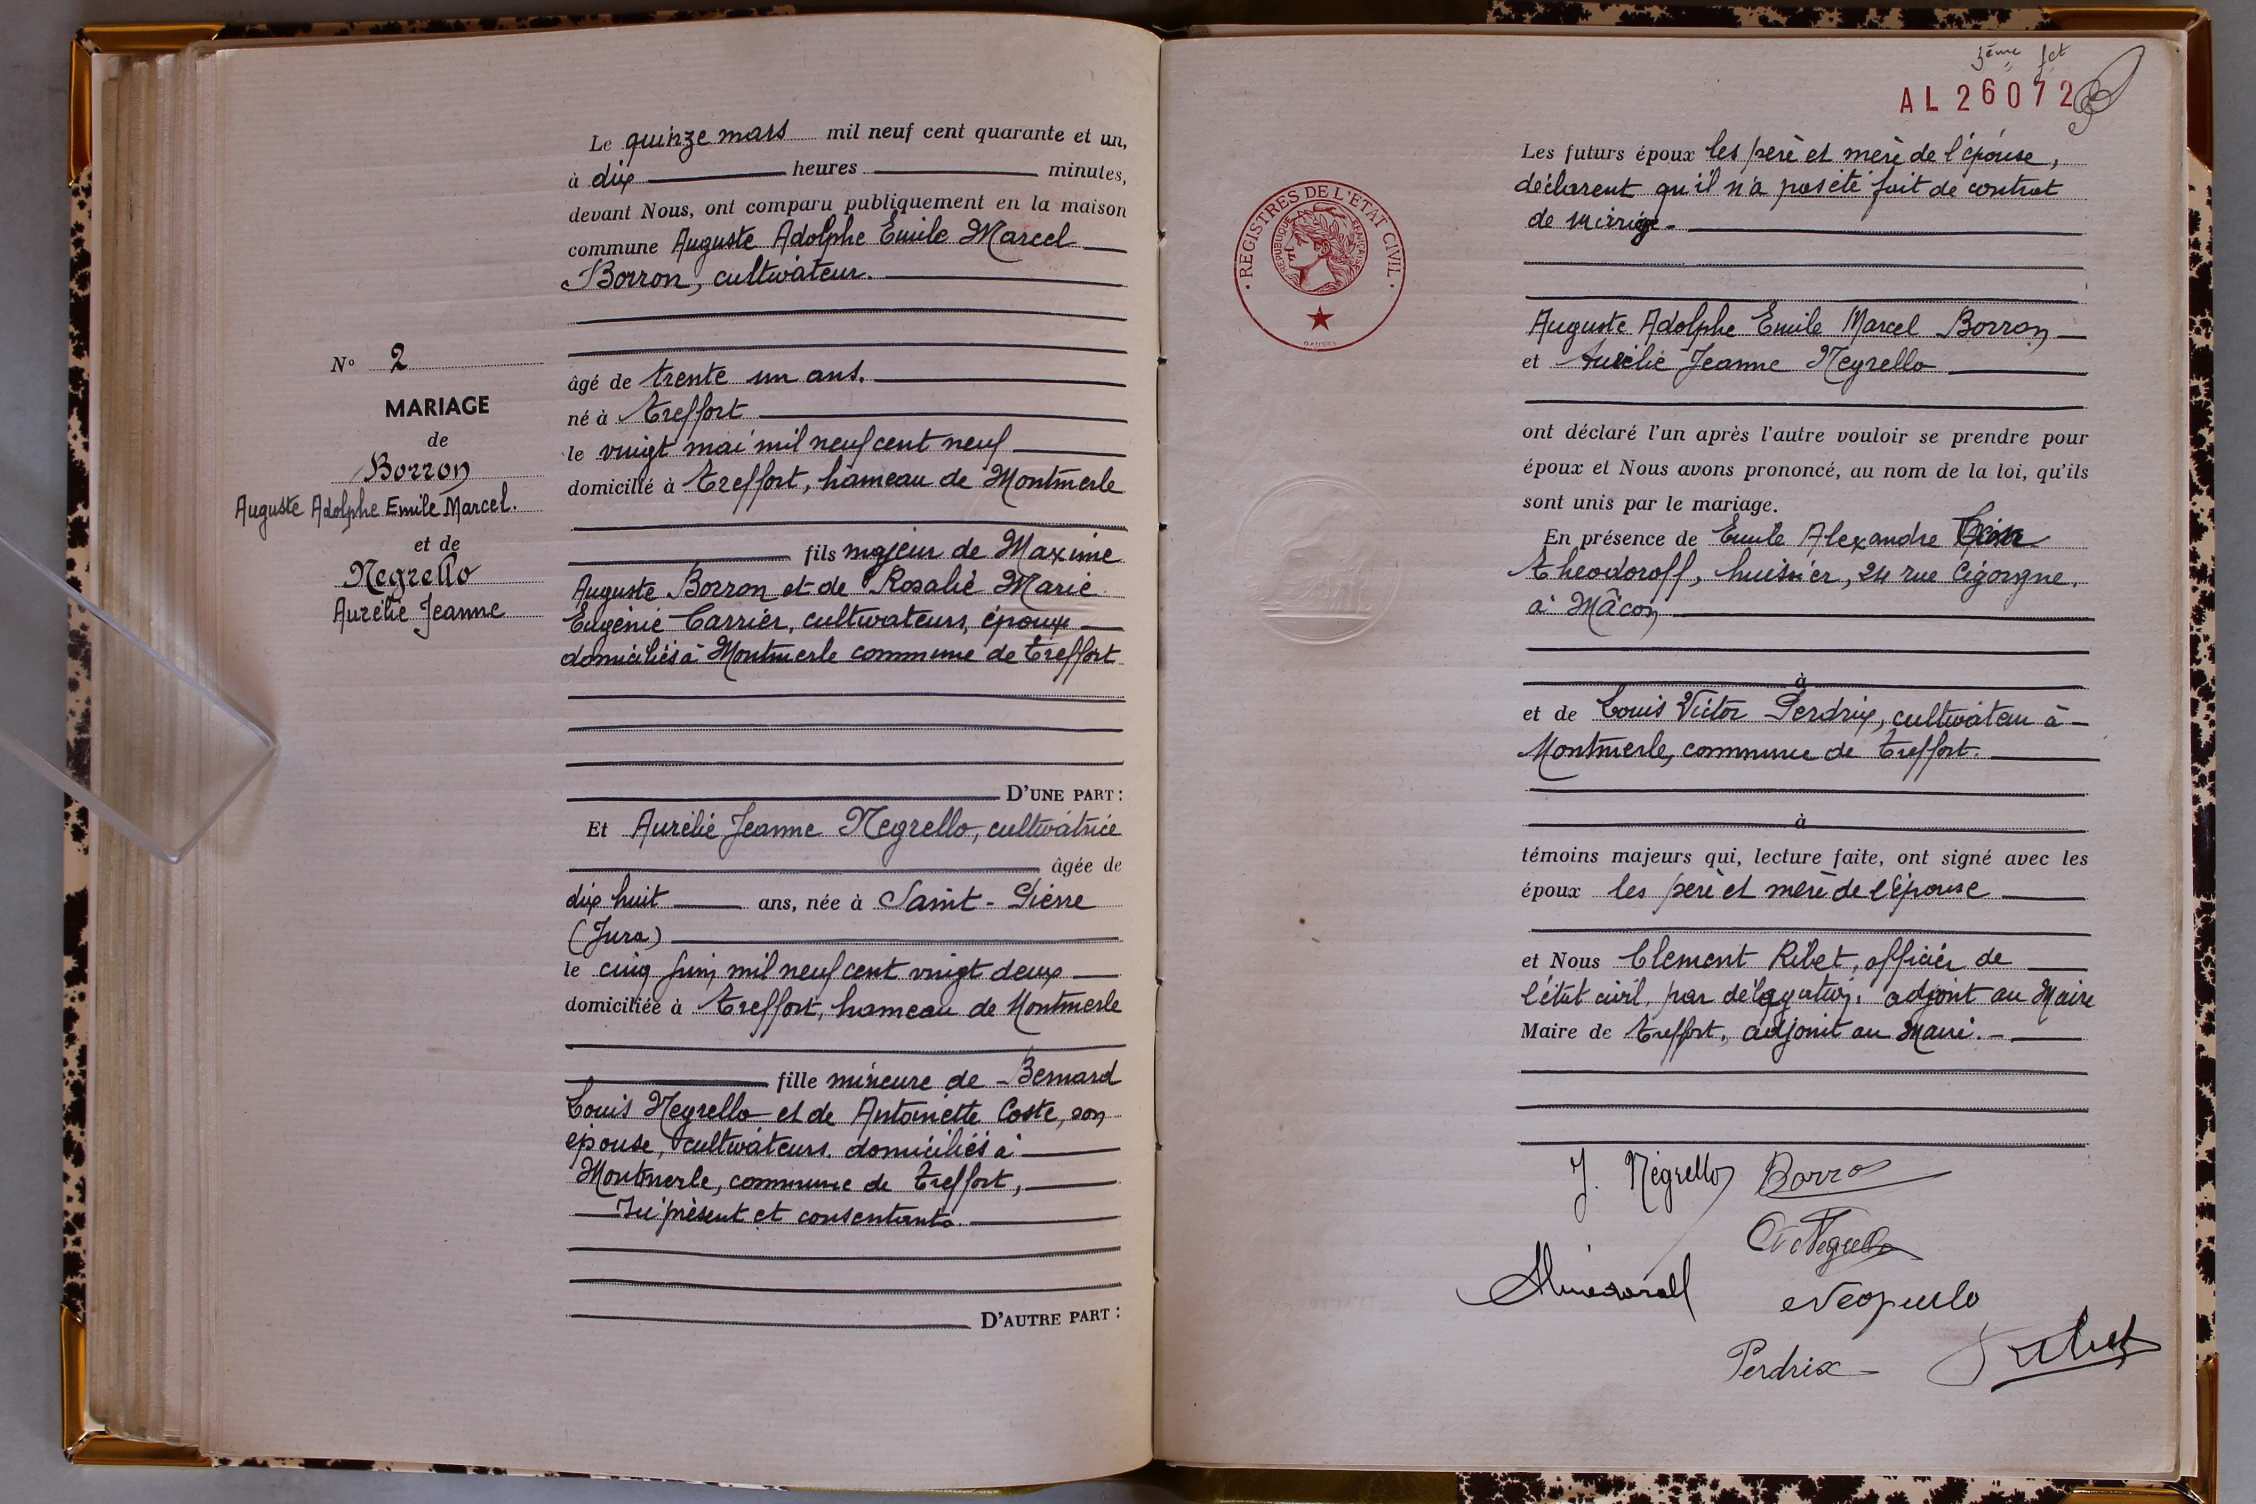 Le quinze mars mil neuf cent quarante et un,
à dix heures minutes,
devant Nous, ont comparu publiquement en la maison
commune Auguste Adolphe Emile Marcel
Borron, cultivateur.
N° 2
MARIAGE
de
Borron
Auguste Adolphe Emile Marcel.
et de
Negrello
Aurélie Jeanne
âgé de trente un ans.
né à Treffort
le vingt mai mil neuf cent neuf
domicilié à Treffort, hameau de Montmerle
fils majeur de Maxime
Auguste Borron et de Rosalie Marie
Eugénie Carrier, cultivateurs, époux
domiciliés à Montmerle commune de Treffort
D'UNE PART :
Et Aurélie Jeanne Negrello, cultivatrice
âgée de
dix huit ans, née à Saint-Pierre
(Jura)
le cinq juin mil neuf cent vingt deux
domiciliée à Treffort, hameau de Montmerle
fille mineure de Bernard
Louis Negrello et de Antoinette Coste, son
épouse, cultivateurs domiciliés à
Montmerle, commune de Treffort,
Ici présent et consentants.
D'AUTRE PART :
3ème fct
AL 26072
REGISTRES DE L'ETAT CIVIL
REPUBLIQUE FRANÇAISE
Les futurs époux les père et mère de l'épouse,
déclarent qu'il n'a pas été fait de contrat
de mariage.
Auguste Adolphe Emile Marcel Borron
et Aurélie Jeanne Negrello
ont déclaré l'un après l'autre vouloir se prendre pour
époux et Nous avons prononcé, au nom de la loi, qu'ils
sont unis par le mariage.
En présence de Emile Alexandre
Theodoroff, huissier, 24 rue Cigorgne.
à Mâcon
à
et de Louis Victor Perdrix, cultivateur à
Montmerle, commune de Treffort.
à
témoins majeurs qui, lecture faite, ont signé avec les
époux les père et mère de l'épouse
et Nous Clement Ribet, officier de
l'état civil, par délégation, adjoint au Maire
Maire de Treffort, adjoint au Maire.
J. Négrello Borron
Perdrix